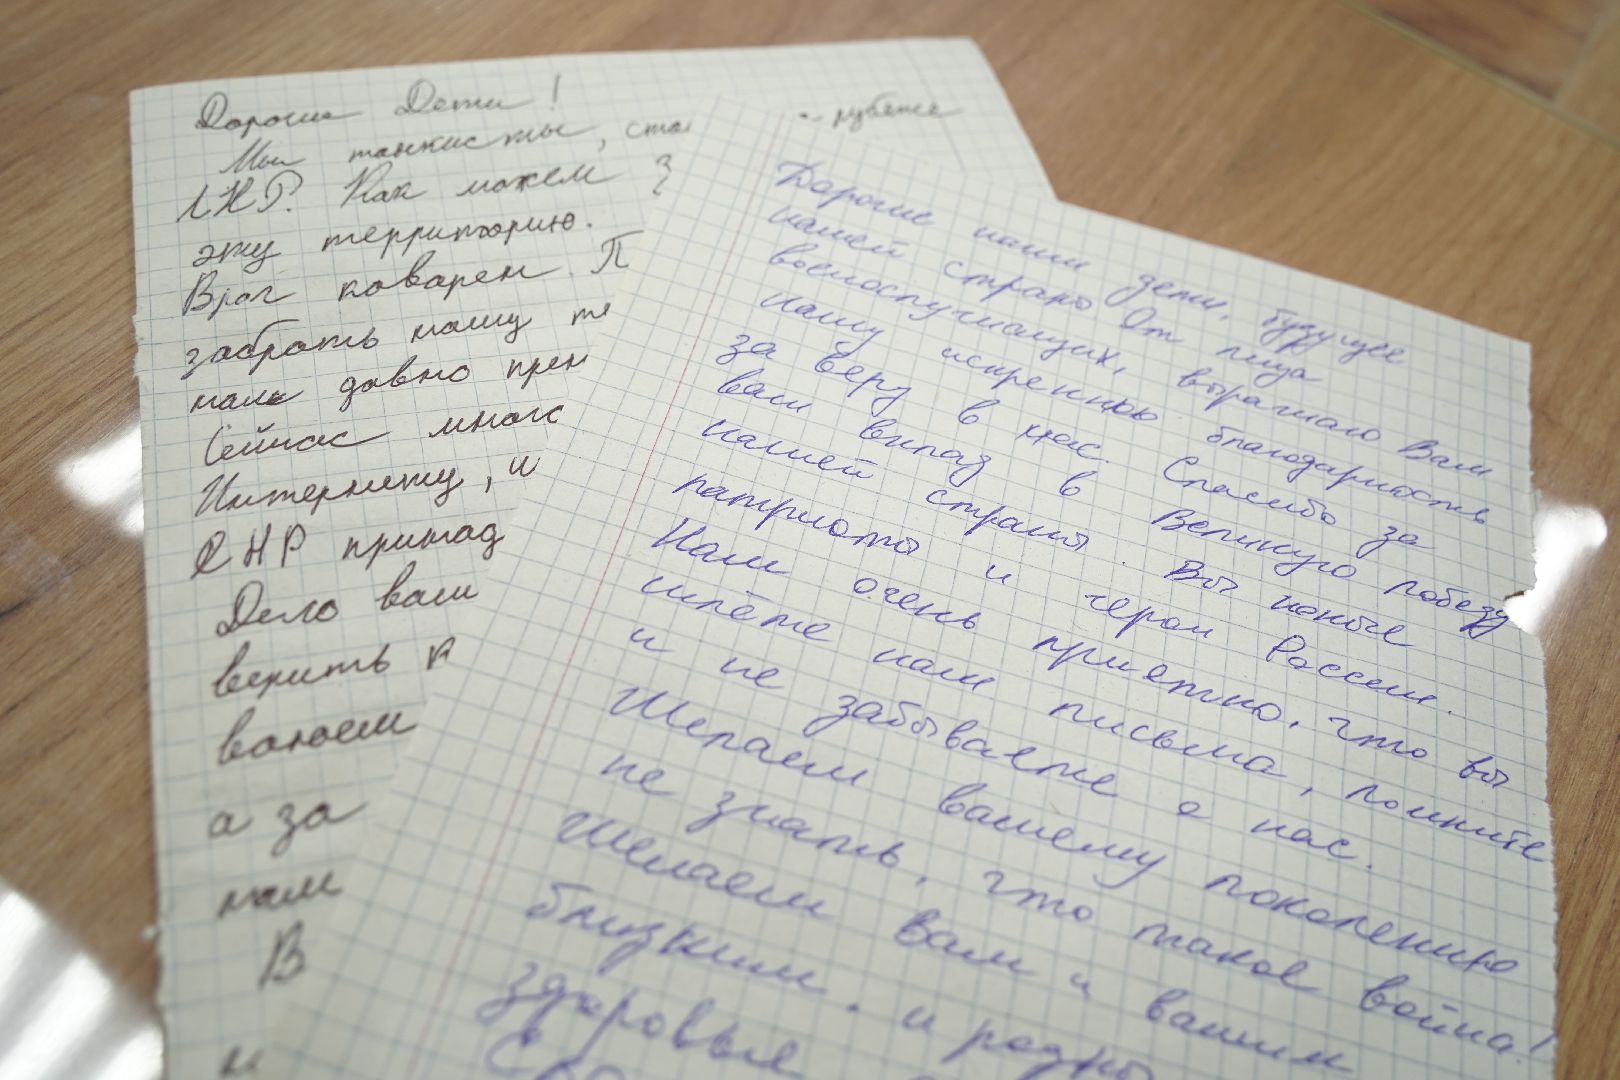 Дорогие Дети!
Мы танкисты, стои
рубеже
ЛНР. Как можем
эту территорию.
Враг коварен. П
забрать нашу те
нам давно прен
Сейчас много
Интернету, и
ЛНР принад
Дело ваш
верить к
воюем
а за
нам
В
и
Дорогие наши дети, будущее
нашей страны. От лица
военослужащих, выражаю Вам
нашу искреннюю благодарность
за веру в нас. Спасибо за
ваш вклад в Великую победу
нашей страны. Вы юные
патриоты и герои России.
Нам очень приятно, что вы
шлёте нам письма, помните
и не забываете о нас.
Желаем вашему поколению
не знать, что такое война!
Желаем вам и вашим
близким и родн
здоровья